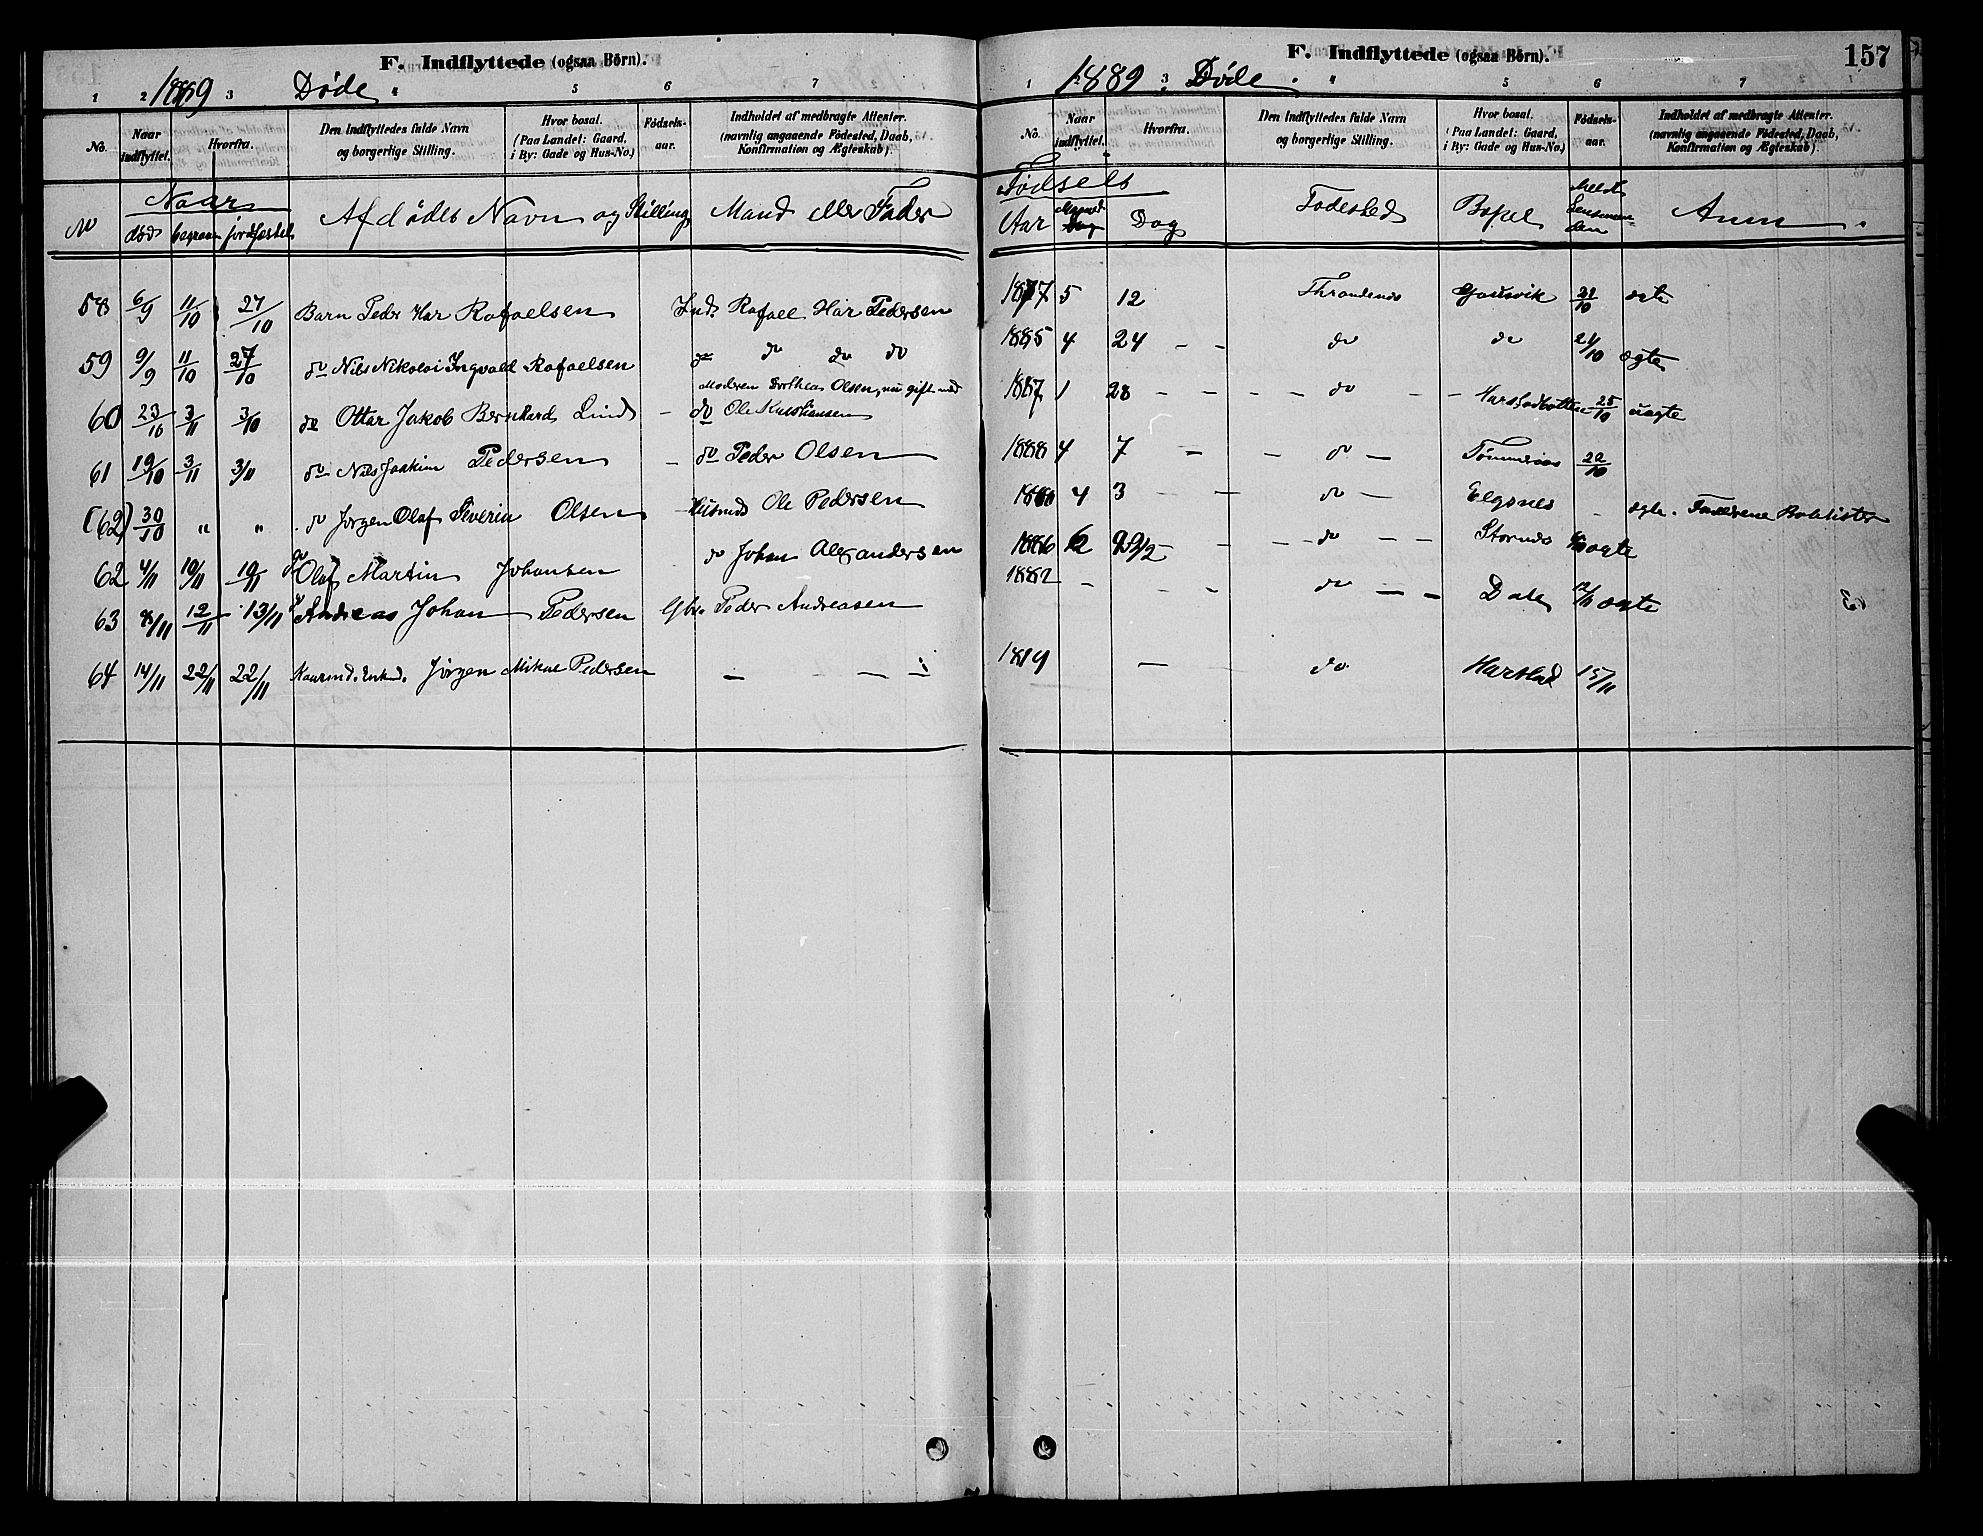 F. Indflyttede (ogsaa Børn).
1889 Døde
1 2 3 4 5 6 7
No. Naar indflyttet. Hvorfra. Den Indflyttedes fulde Navn og borgerlige Stilling. Hvor bosat. (Paa Landet: Gaard, i By: Gade og Hus-No.) Fødsels-aar. Indholdet af medbragte Attester. (navnlig angaaende Fødested, Daab, Konfirmation og Ægteskab).
No Naar død begraven jordfæstet Afdødes Navn og Stilling Mand eller Fader
58 6/9 11/10 27/10 Barn Peder Har Rafaelsen Ind. Rafael Har Pedersen
59 9/9 11/10 27/10 do Nils Nikolai Ingvald Rafaelsen do do do do
Moderen Dorthea Olsen, nu gift med
60 23/10 3/11 3/10 do Ottar Jakob Bernhard Lind - do Ole Kristiansen
61 19/10 3/11 3/11 do Nils Joakim Pedersen - do Peder Olsen
(62) 30/10 " " do Jørgen Olaf Severin Olsen Husmd Ole Pedersen
62 4/11 19/11 19/11 do Olaf Martin Johansen do Johan Alexandersen
63 8/11 12/11 13/11 do Andreas Johan Pedersen Gbr. Peder Andreasen
64 14/11 22/11 22/11 Jørgen Mikal Pedersen - - -
F. Indflyttede (ogsaa Børn). 157
1889 Døde
1 3 4 5 6 7
No. Naar indflyttet. Hvorfra. Den Indflyttedes fulde Navn og borgerlige Stilling. Hvor bosat. (Paa Landet: Gaard, i By: Gade og Hus-No.) Fødsels-aar. Indholdet af medbragte Attester. (navnlig angaaende Fødested, Daab, Konfirmation og Ægteskab).
Fødsels
Aar Maaned Dag Fødested Bopel Meldt Lensmanden Anm.
1877 5 12 Throndenes Gausvik 21/10 ægte
1885 4 24 - - do do 21/10 ægte
1887 1 28 - - - do - - Harstadbotten 25/10 uægte
1888 4 7 - - do - Tømmeraas 22/10
4 3 - - do - Elgsnes - ægte. Forældrene Baptister
1886 - - - do - - Stornes ægte
1882 - - - do - - Dale 12/11 ægte
1819 - do Harstad 15/11